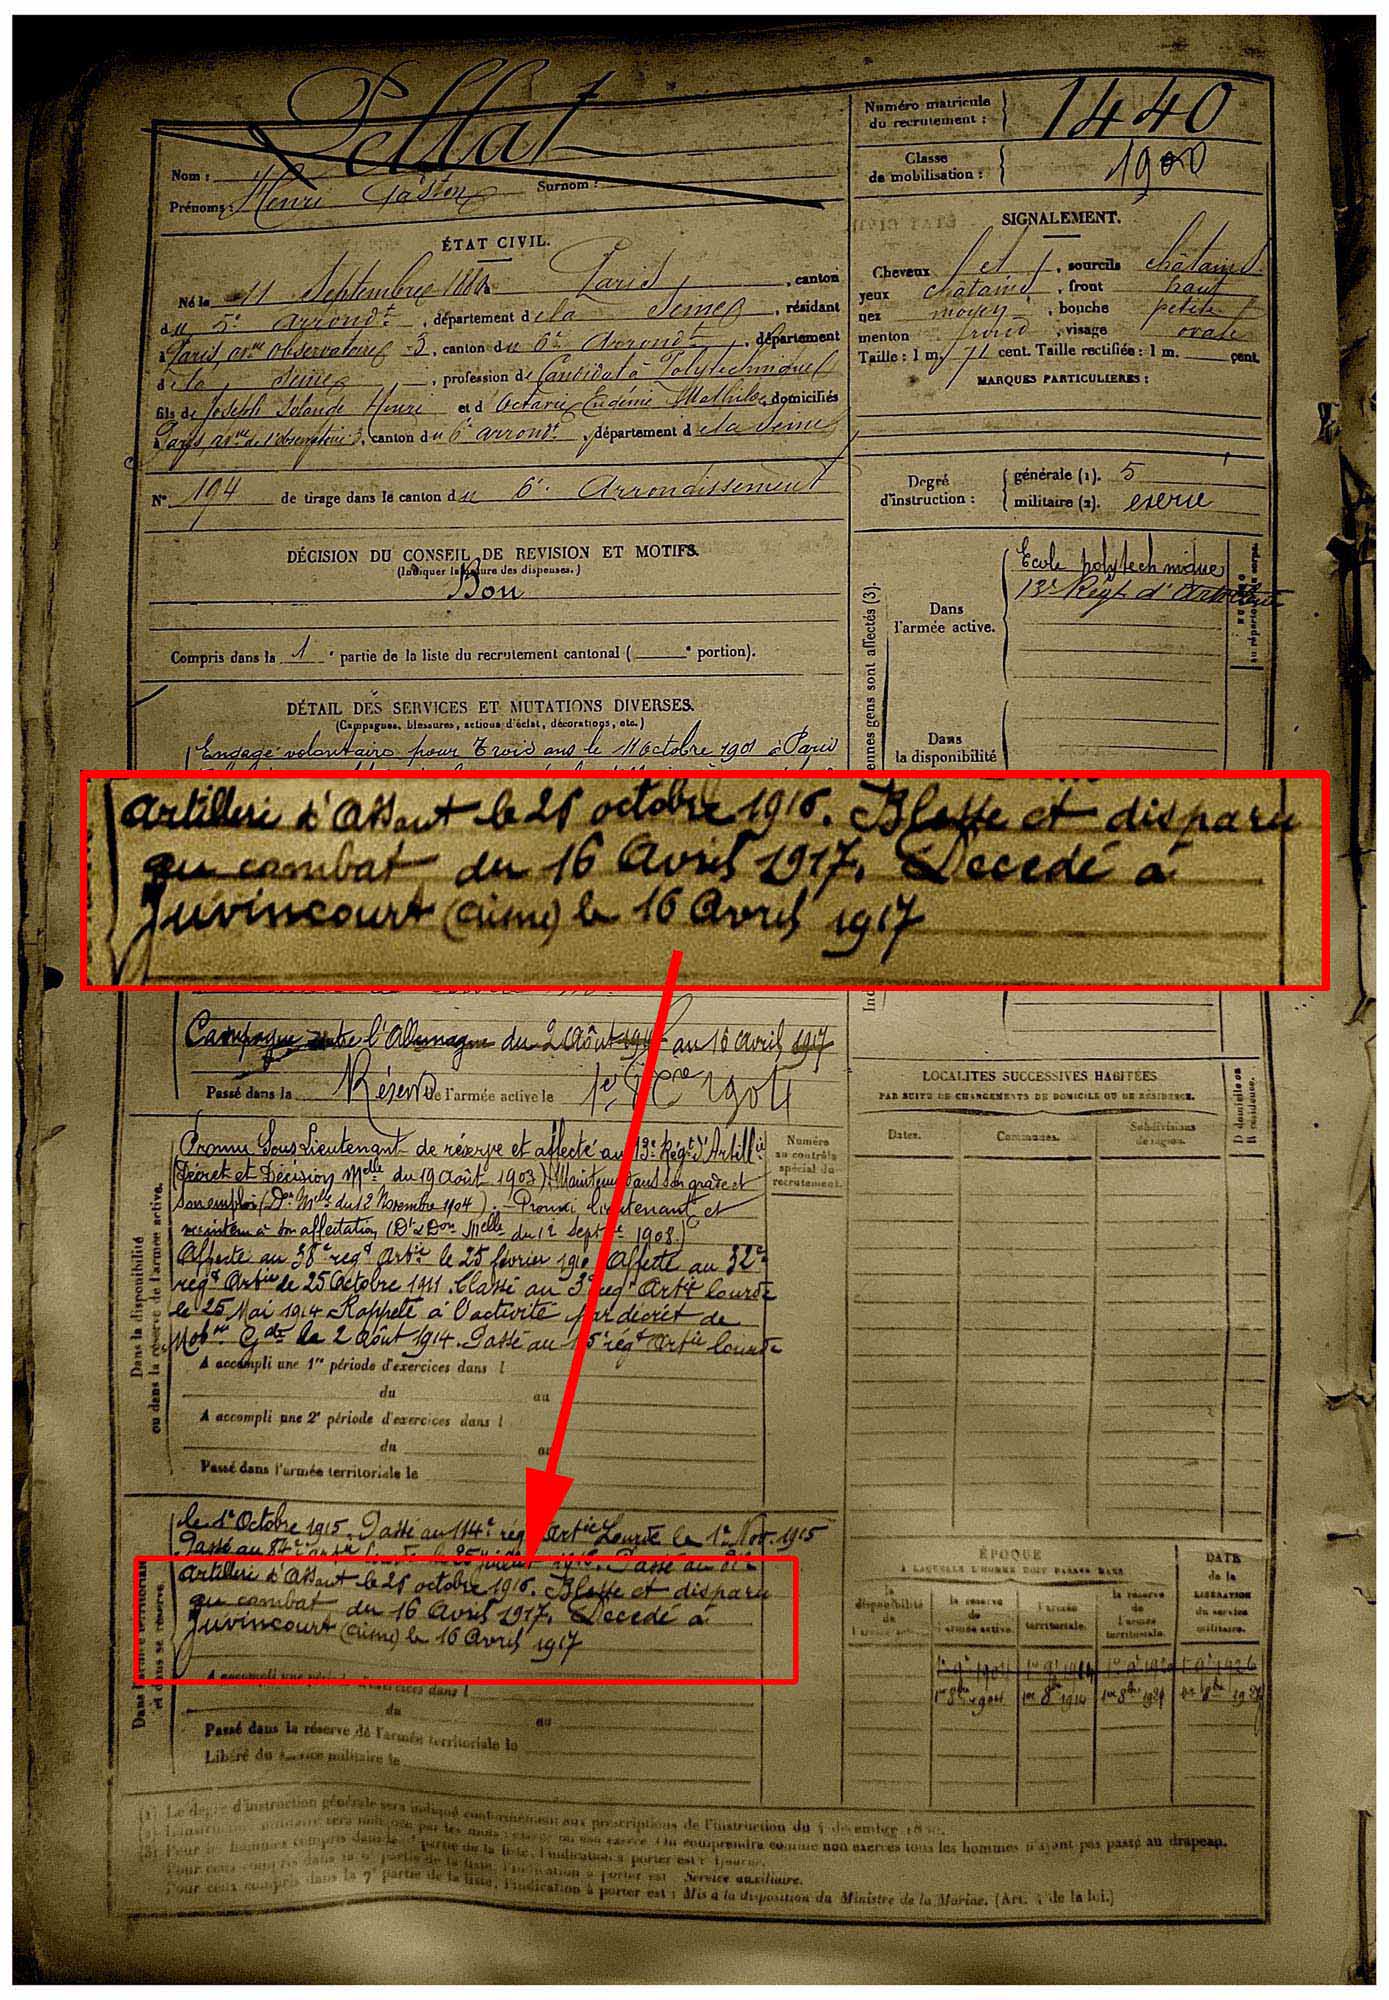 Pellat
Nom :
Prénoms : Henri Gaston Surnom :
ÉTAT CIVIL.
Né le 11 Septembre Paris, canton
du 5e arrondt, département de la Seine, résidant
à Paris, avue Observatoire 3, canton du 6e Arrondt, département
de la Seine, profession de Candidat à Polytechnique
fils de Joseph Solande Henri et d' Octavie Eugénie Mathilde, domiciliés
à Paris, avue de l'observatoire 3, canton du 6e arrondt, département de la Seine
No 194 de tirage dans le canton du 6e Arrondissement
DÉCISION DU CONSEIL DE REVISION ET MOTIFS.
(Indiquer la nature des dispenses.)
Bon
Compris dans la 1e partie de la liste du recrutement cantonal ( e portion).
DÉTAIL DES SERVICES ET MUTATIONS DIVERSES.
(Campagnes, blessures, actions d'éclat, décorations, etc.)
Engagé volontaire pour trois ans le 11 Octobre 1901 à Paris
Numéro matricule
du recrutement : 1440
Classe
de mobilisation : 1900
SIGNALEMENT.
Cheveux et sourcils châtains
yeux châtains, front haut
nez moyen, bouche petite
menton rond, visage ovale
Taille : 1 m. 71 cent. Taille rectifiée : 1 m. cent.
MARQUES PARTICULIÈRES :
Degré
d'instruction :
générale (1). 5
militaire (2). exercé
Ecole polytechnique
13e Régt d'Artillerie
Dans
l'armée active.
Dans
la disponibilité
Artillerie d'Assaut le 25 octobre 1916. Blessé et disparu
au combat du 16 Avril 1917. Décédé à
Juvincourt (Aisne) le 16 Avril 1917
Campagne contre l'Allemagne du 2 Août 1914 au 16 avril 1917
Passé dans la Réserve de l'armée active le 1er 8bre 1904
Dans la disponibilité
ou dans la réserve de l'armée active.
Promu Sous Lieutenant de réserve et affecté au 13e Régt d'Artillie
(Décret et Décision Melle du 19 Août 1903). Maintenu dans son grade et
son emploi (Don Melle du 12 Novembre 1904). - Promu lieutenant et
maintenu à son affectation (Dt & Don Melle du 12 Septbre 1908.)
Affecté au 38e régt Artie le 25 février 1910 Affecté au 32e
régt Artie le 25 Octobre 1911. Classé au 3e régt Artie lourde
le 25 Mai 1914 Rappelé à l'activité par décret de
Mobon Gale le 2 Août 1914. Passé au 15e régt Artie lourde
A accompli une 1re période d'exercices dans l
du au
A accompli une 2e période d'exercices dans l
du au
Passé dans l'armée territoriale le
Numéro
au contrôle
spécial du
recrutement.
LOCALITÉS SUCCESSIVES HABITÉES
PAR SUITE DE CHANGEMENTS DE DOMICILE OU DE RÉSIDENCE.
D domicile ou
R résidence.
Dates. Communes. Subdivisions
de région.
Dans l'armée territoriale
et dans sa réserve.
le 1e Octobre 1915. Passé au 114e rég Artie Lourde le 1e Nov. 1915
Passé au 84e
Artillerie d'Assaut le 25 octobre 1916. Blessé et disparu
au combat du 16 Avril 1917. Décédé à
Juvincourt (Aisne) le 16 Avril 1917
A accompli une période d'exercices dans l
du au
Passé dans la réserve de l'armée territoriale le
Libéré du service militaire le
ÉPOQUE
A LAQUELLE L'HOMME DOIT PASSER DANS
la
disponibilité
de
l'armée active.
la réserve
de
l'armée active.
l'armée
territoriale.
la réserve
de
l'armée
territoriale.
DATE
de la
LIBÉRATION
du service
militaire.
1er 8bre 1904 1er 8bre 1914
(1) Le degré d'instruction générale sera indiqué conformément aux prescriptions de l'instruction du 4 décembre
(2) L'instruction militaire sera indiquée par les mots : exercé ou non exercé. On comprendra comme non exercés tous les hommes n'ayant pas passé au drapeau.
(3) Pour les hommes compris dans la partie de la liste, l'indication à porter est :
Pour ceux compris dans la partie de la liste, l'indication à porter est Service auxiliaire.
Pour ceux compris dans la 7e partie de la liste, l'indication à porter est : Mis à la disposition du Ministre de la Marine. (Art. 4 de la loi.)